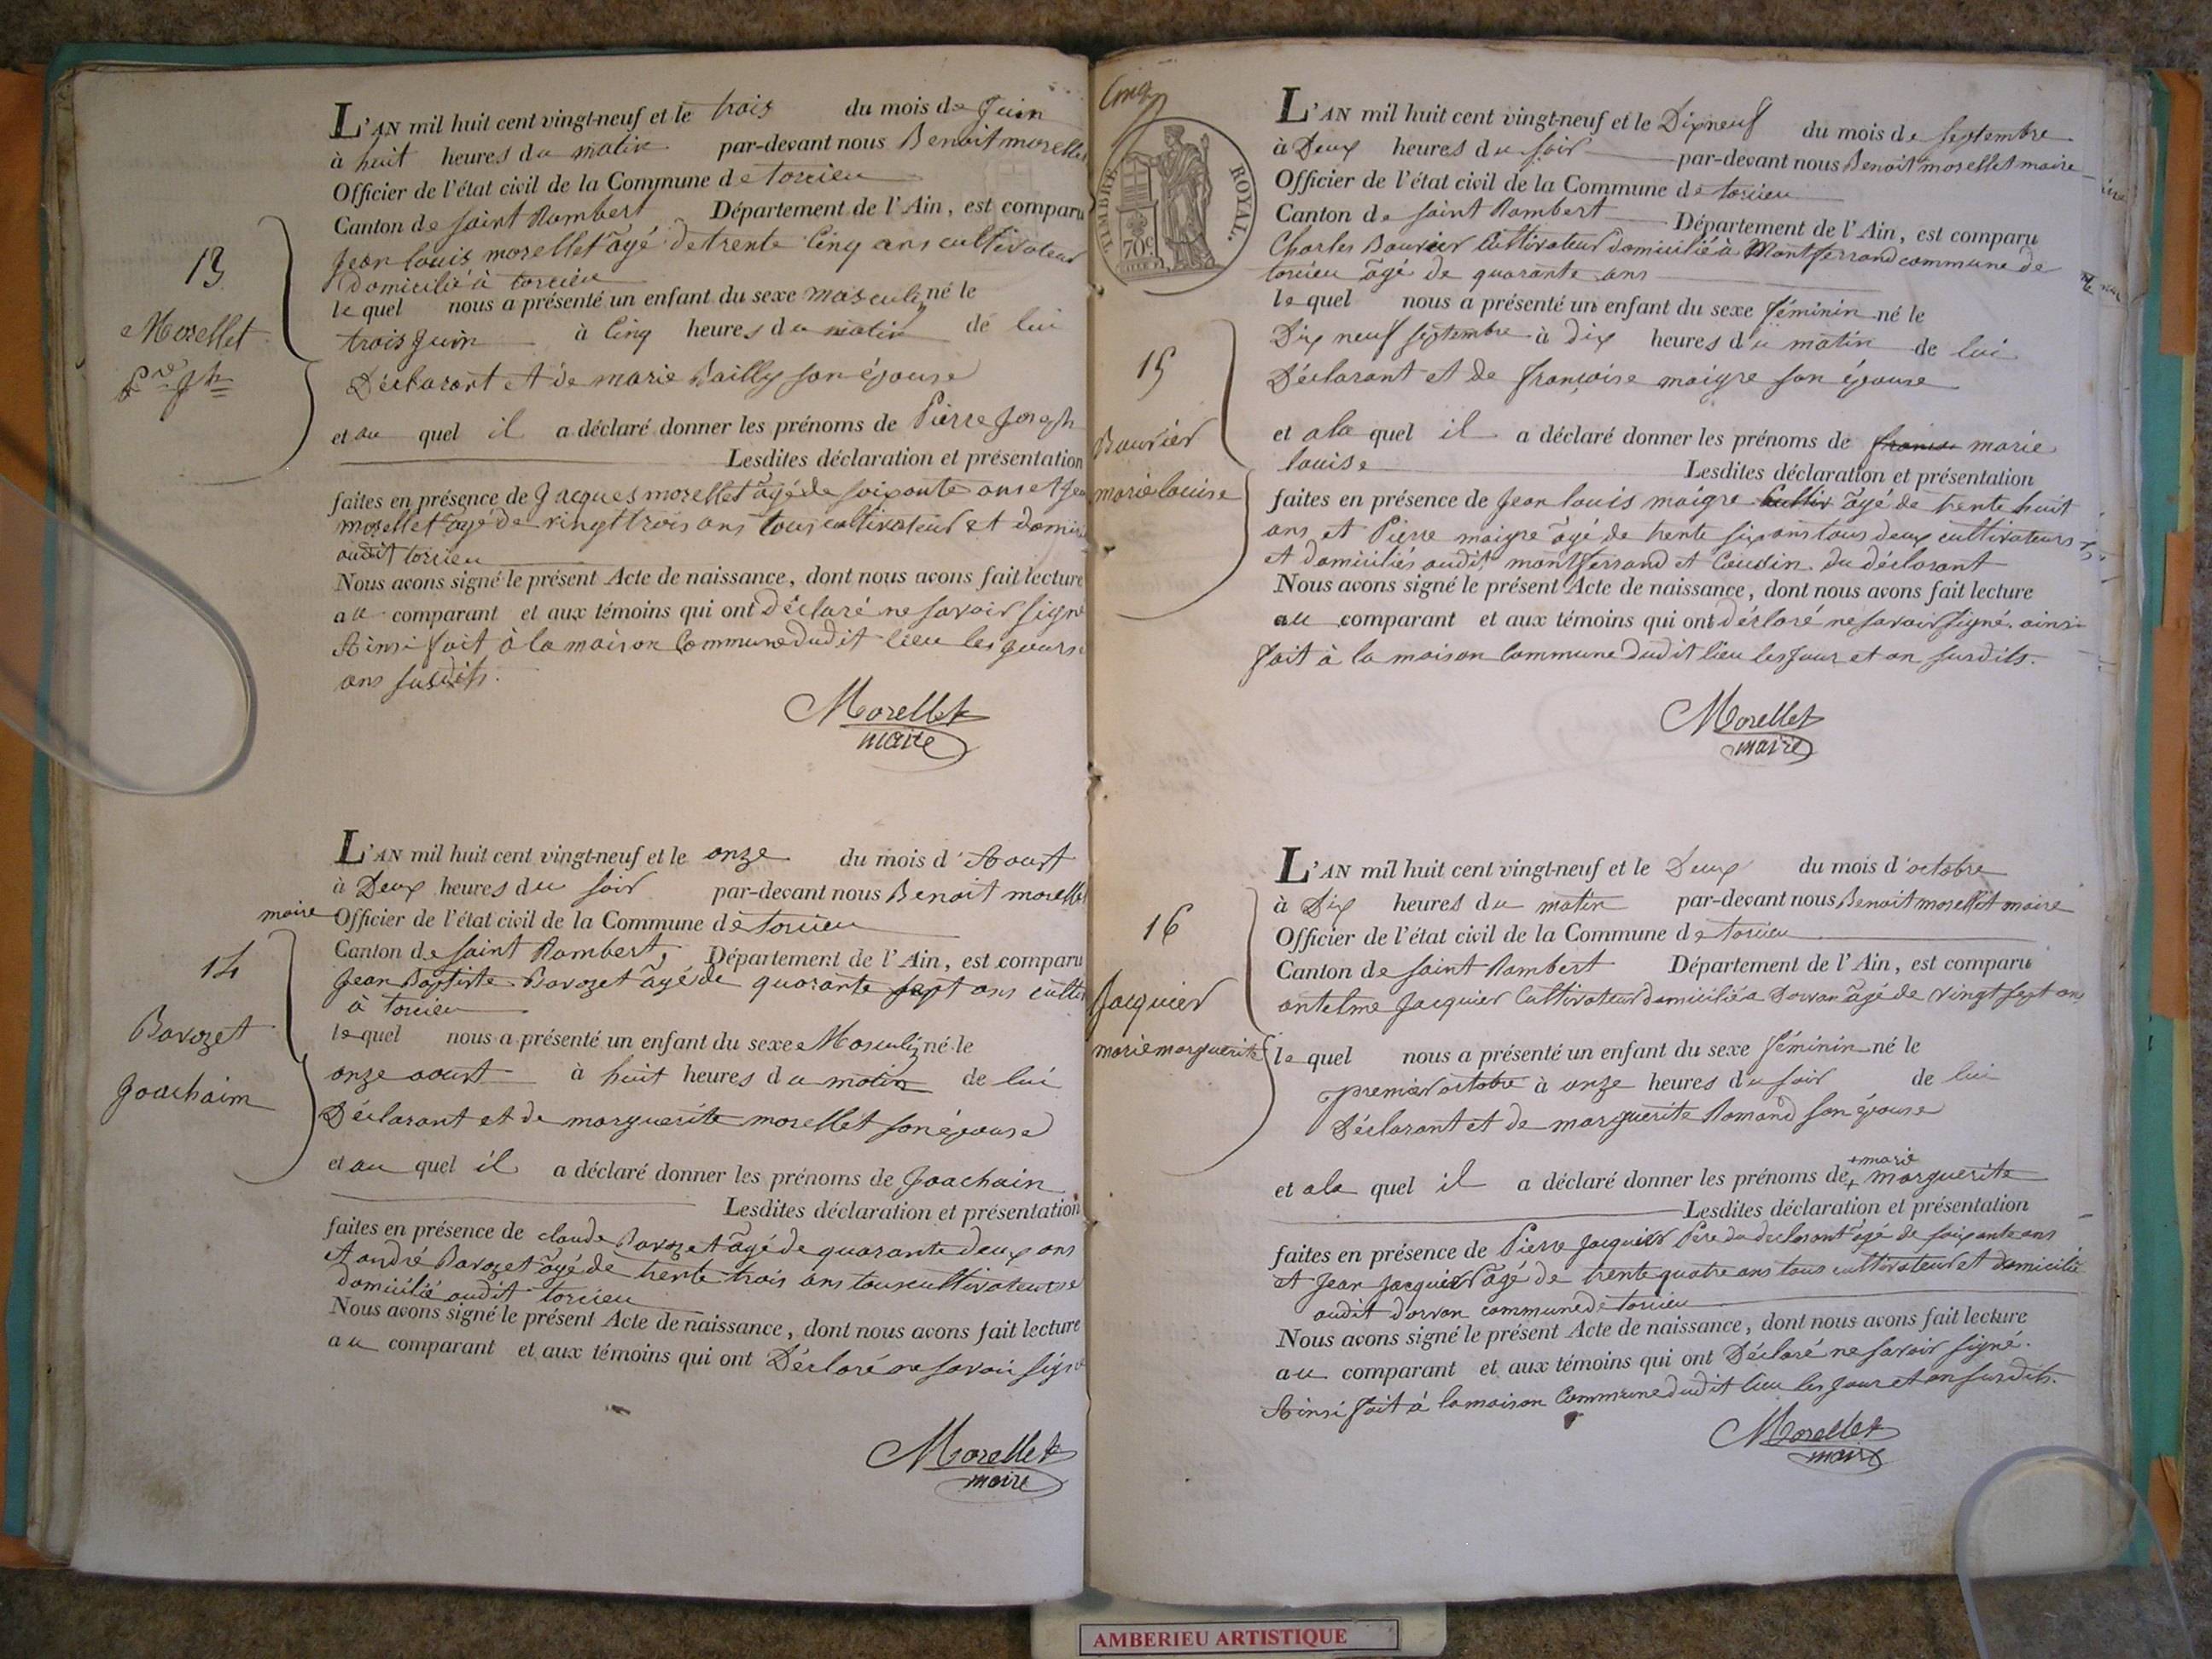 L'AN mil huit cent vingt-neuf et le trois du mois de Juin
à huit heures du matin par-devant nous Benoit morellet
Officier de l'état civil de la Commune de torcieu
Canton de saint Rambert Département de l'Ain, est comparu
Jean louis morellet âgé de trente Cinq ans cultivateur
domicilié à torcieu
13
Morellet
P.re Jh
lequel nous a présenté un enfant du sexe masculin né le
trois Juin à Cinq heures du matin de lui
Déclarant et de marie Bailly son épouse
et au quel il a déclaré donner les prénoms de Pierre Joseph
Lesdites déclaration et présentation
faites en présence de Jacques morellet âgé de soixante ans et
morellet âgé de vingt trois ans tous cultivateur et
audit torcieu
Nous avons signé le présent Acte de naissance, dont nous avons fait lecture
au comparant et aux témoins qui ont déclaré ne savoir signé
Ainsi fait à la maison Commune dudit lieu les jours
ans susdits.
Morellet
maire
L'AN mil huit cent vingt-neuf et le onze du mois d'Aoust
à Deux heures du soir par-devant nous Benoit morellet
maire Officier de l'état civil de la Commune de torcieu
Canton de saint Rambert, Département de l'Ain, est comparu
Jean Baptiste Bavozet âgé de quarante sept ans
à torcieu
14
Bavozet
Joachaim
lequel nous a présenté un enfant du sexe Masculin né le
onze aoust à huit heures du matin de lui
Déclarant et de marguerite morellet son épouse
et au quel il a déclaré donner les prénoms de Joachain
Lesdites déclaration et présentation
faites en présence de claude Bavozet âgé de quarante deux ans
et andré Bavozet âgé de trente trois ans tous cultivateurs
domicilié audit torcieu
Nous avons signé le présent Acte de naissance, dont nous avons fait lecture
au comparant et aux témoins qui ont Déclaré ne savoir signé
Morellet
maire
Cinq
TIMBRE ROYAL.
70c.
L'AN mil huit cent vingt-neuf et le Dix neuf du mois de septembre
à Deux heures du soir par-devant nous Benoit morellet maire
Officier de l'état civil de la Commune de torcieu
Canton de saint Rambert Département de l'Ain, est comparu
Charles Bouvier Cultivateur domicilié à Montferrand commune de
torcieu âgé de quarante ans
15
Bouvier
marie louise
lequel nous a présenté un enfant du sexe féminin né le
Dix neuf septembre à dix heures du matin de lui
Déclarant et de françoise maigre son épouse
et a la quel il a déclaré donner les prénoms de marie
louise
Lesdites déclaration et présentation
faites en présence de Jean louis maigre âgé de trente huit
ans et Pierre maigre âgé de trente six ans tous deux cultivateurs
et domiciliés audit montferrand et Cousin du déclarant
Nous avons signé le présent Acte de naissance, dont nous avons fait lecture
au comparant et aux témoins qui ont déclaré ne savoir signé. ainsi
fait à la maison Commune dudit lieu les Jour et an susdits.
Morellet
maire
L'AN mil huit cent vingt-neuf et le Deux du mois d'octobre
à Dix heures du matin par-devant nous Benoit morellet maire
Officier de l'état civil de la Commune de torcieu
Canton de saint Rambert Département de l'Ain, est comparu
antelme Jacquier Cultivateur domicilié a Dorvan âgé de vingt sept ans
16
Jacquier
marie marguerite
lequel nous a présenté un enfant du sexe féminin né le
premier octobre à onze heures du soir de lui
Déclarant et de marguerite Romand son épouse
+ marie
et a la quel il a déclaré donner les prénoms de + marguerite
Lesdites déclaration et présentation
faites en présence de Pierre Jacquier Père du declarant âgé de soixante ans
et Jean Jacquier âgé de trente quatre ans tous cultivateur et domicilié
audit dorvan commune de torcieu
Nous avons signé le présent Acte de naissance, dont nous avons fait lecture
au comparant et aux témoins qui ont Déclaré ne savoir signé.
Ainsi fait à la maison Commune dudit lieu les Jour et an susdits.
Morellet
maire
AMBERIEU ARTISTIQUE